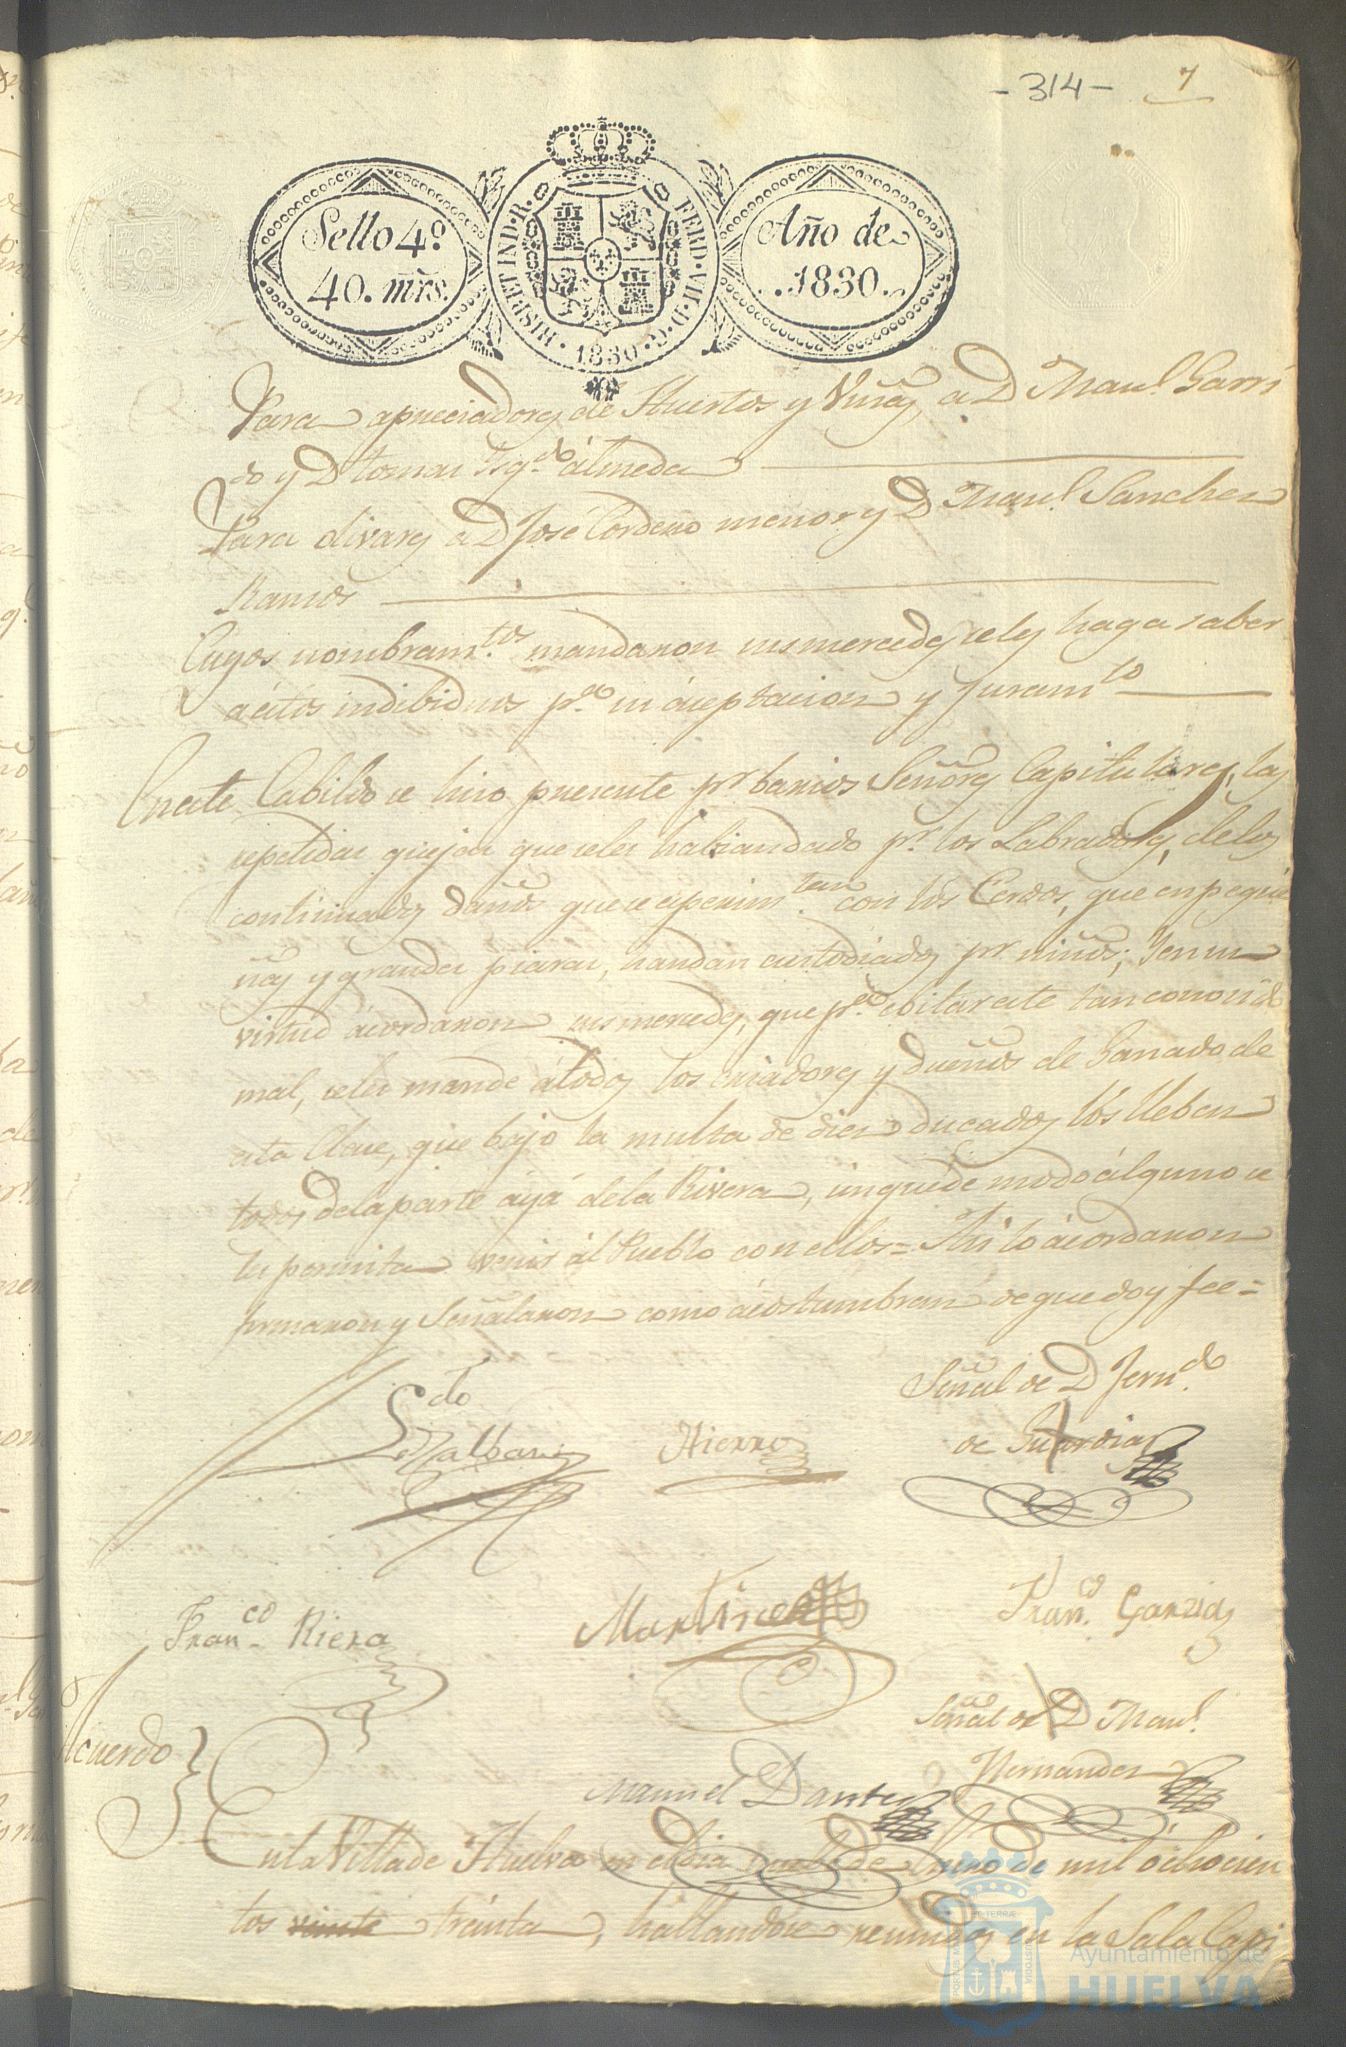 -314- 7
Sello 4º
40. mrs.
HISP. ET IND. R. FERD. VII. D. G. 1830
Año de
1830.
Para apreciadores de Huertos y Viñas, a D. Manl. Garri
do y D. tomas Izqdo. álmeda
Para olivares a D. José Cordero menor y D. Manl. Sanchez
Ramos
Cuyos nombramtos. mandaron sus mercedes se les haga saber
á estos indibiduos pa. su áceptacion y Juramto.
En este Cabildo se hizo presente pr. barios Señores Capitulares, las
repetidas quejas que se les habian dado pr. los Labradores, de los
continuados daños que se esperimtan. con los Cerdos, que en peque
ñas y grandes piaras, handan custodiados pr. niños; Y en su
virtud ácordaron sus mercedes, que pa. ebitar este tan conosido
mal, se les mande á todos los criadores y dueños de Ganado de
esta Clase, que bajo la multa de diez ducados los lleben
todos de la parte ayá de la Rivera, sin que de modo álguno se
les permita venir ál Pueblo con ellos = Asi lo ácordaron
firmaron y Señalaron como ácostumbran de que doy fee =
Ldo. Villalba Hierro
Señal de D. Ferndo.
de Guardia
Franco. Riera Martinez Franco. Garzia
Señal de D. Manl.
Hernandez
Acuerdo
Manuel Dante
En la Villa de Huelva en el dia nuebe de Enero de mil óchocien
tos veinte treinta, hallandose reunidos en la Sala Capi
PORTUS MARIS ET TERRAE CUSTODIA
Ayuntamiento de
HUELVA